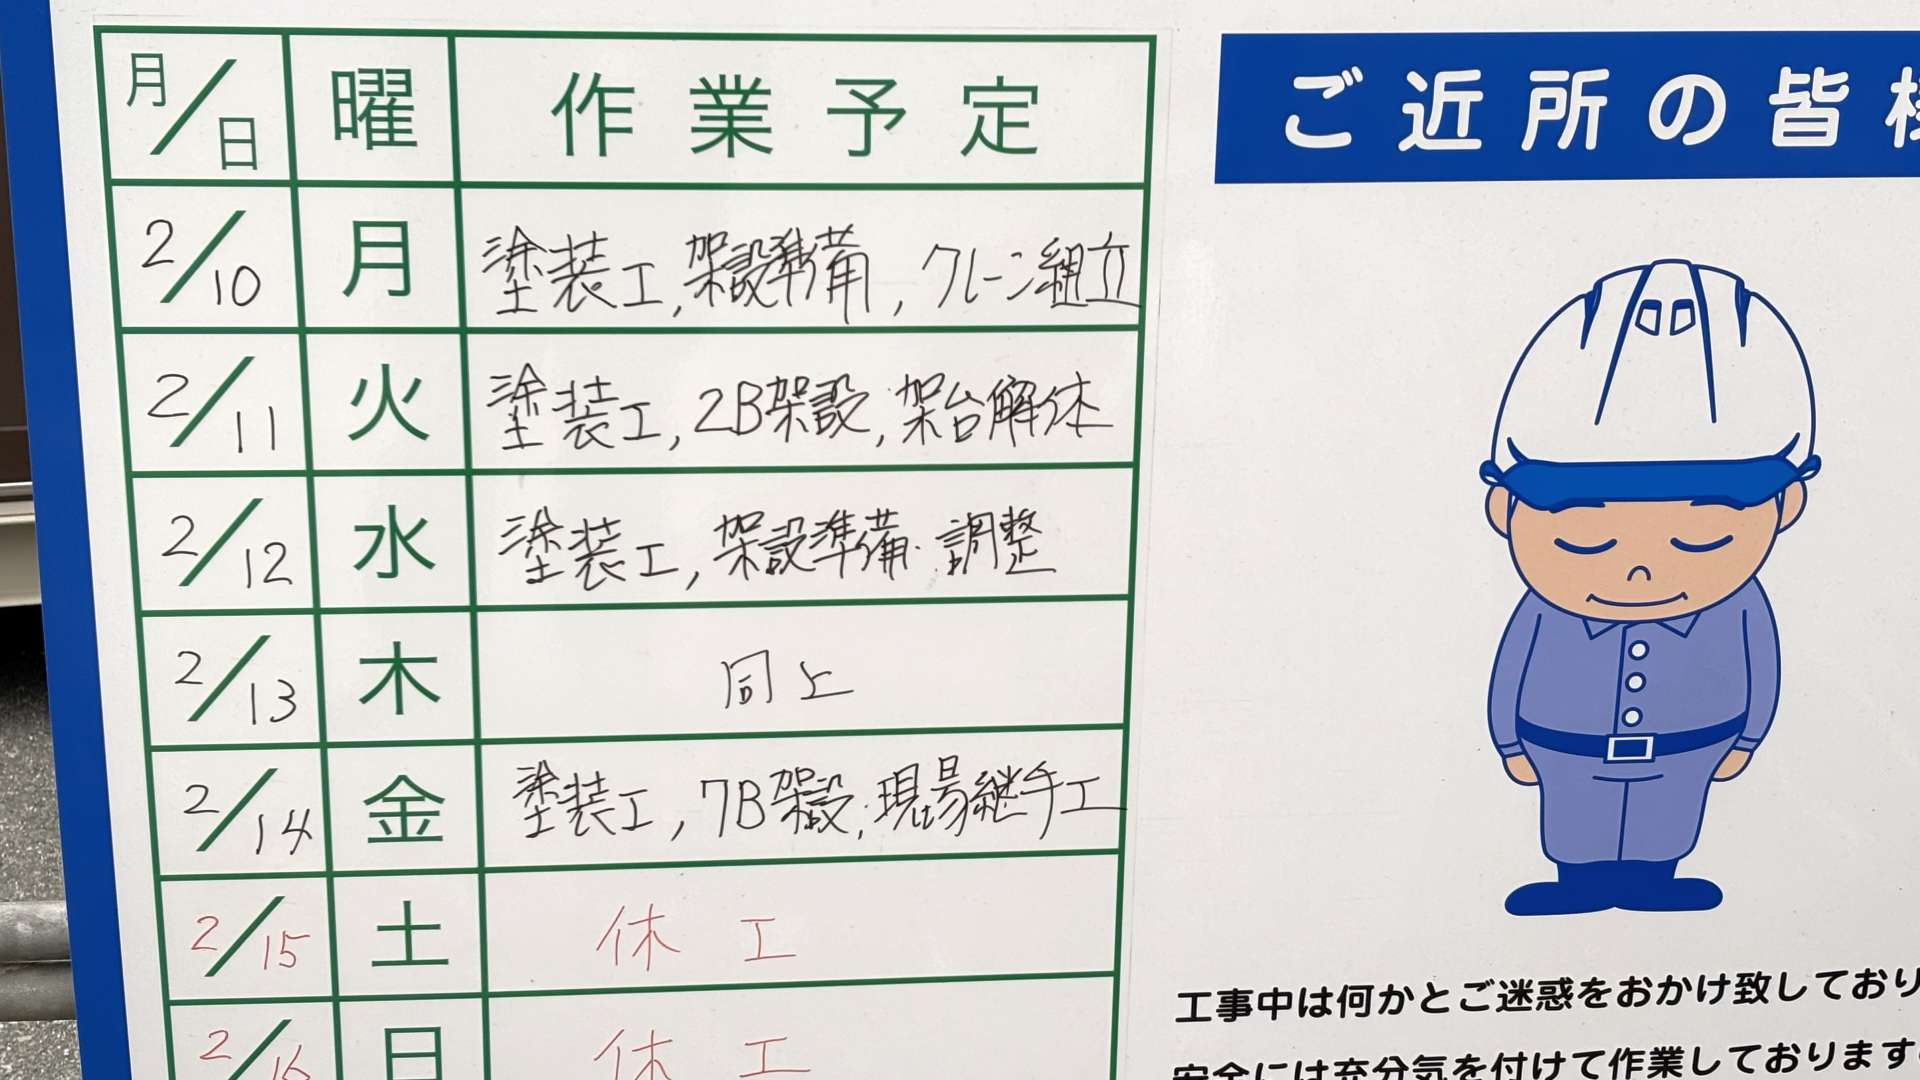 月/日 曜 作業予定
2/10 月 塗装工,架設準備,クレーン組立
2/11 火 塗装工,2B架設,架台解体
2/12 水 塗装工,架設準備・調整
2/13 木 同上
2/14 金 塗装工,7B架設,現場継手工
2/15 土 休工
2/16 日 休工
ご近所の皆様
工事中は何かとご迷惑をおかけ致しており
安全には充分気を付けて作業しております